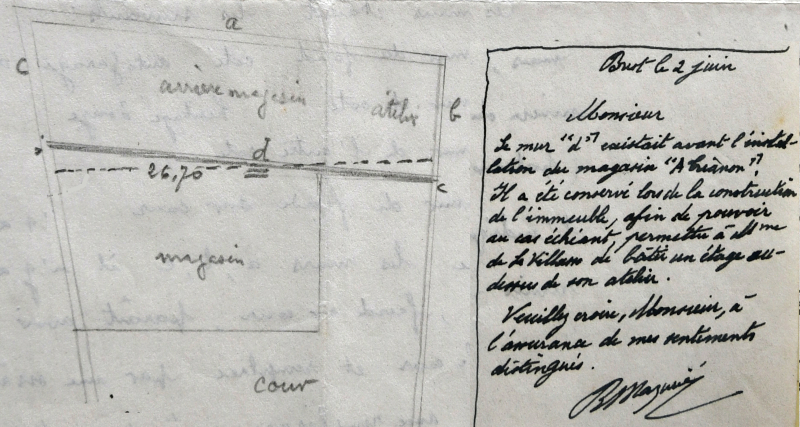 a
c
arrière magasin
atelier
b
d
26,70
c
magasin
cour
Brest le 2 juin
Monsieur
Le mur "d" existait avant l'instal-
lation du magasin "A Trianon".
Il a été conservé lors de la construction
de l'immeuble, afin de pouvoir
au cas échéant, permettre à Mme
de Le Villass de bâtir un étage au-
dessus de son atelier.
Veuillez croire, Monsieur, à
l'assurance de mes sentiments
distingués.